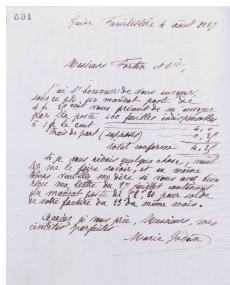 501
Guise Familistère 4 août 1897
Messieurs Fortin & Cie,
J'ai l'honneur de vous envoyer
sous ce pli, un mandat poste de
4 f. 85 cent vous priant de m'envoyer
par la poste 400 feuilles
à 1 f. le cent 4,"
frais de port (supposés) 0,85
total conforme 4,85
si je vous devais quelque chose, veuillez
me le faire savoir, et en même
temps veuillez me dire si vous avez bien
reçu ma lettre du 27 juillet contenant
un mandat poste de pour solde
de votre facture du 23 du même mois.
Agréez je vous prie, Messieurs, mes
civilités parfaites
Marie Godin